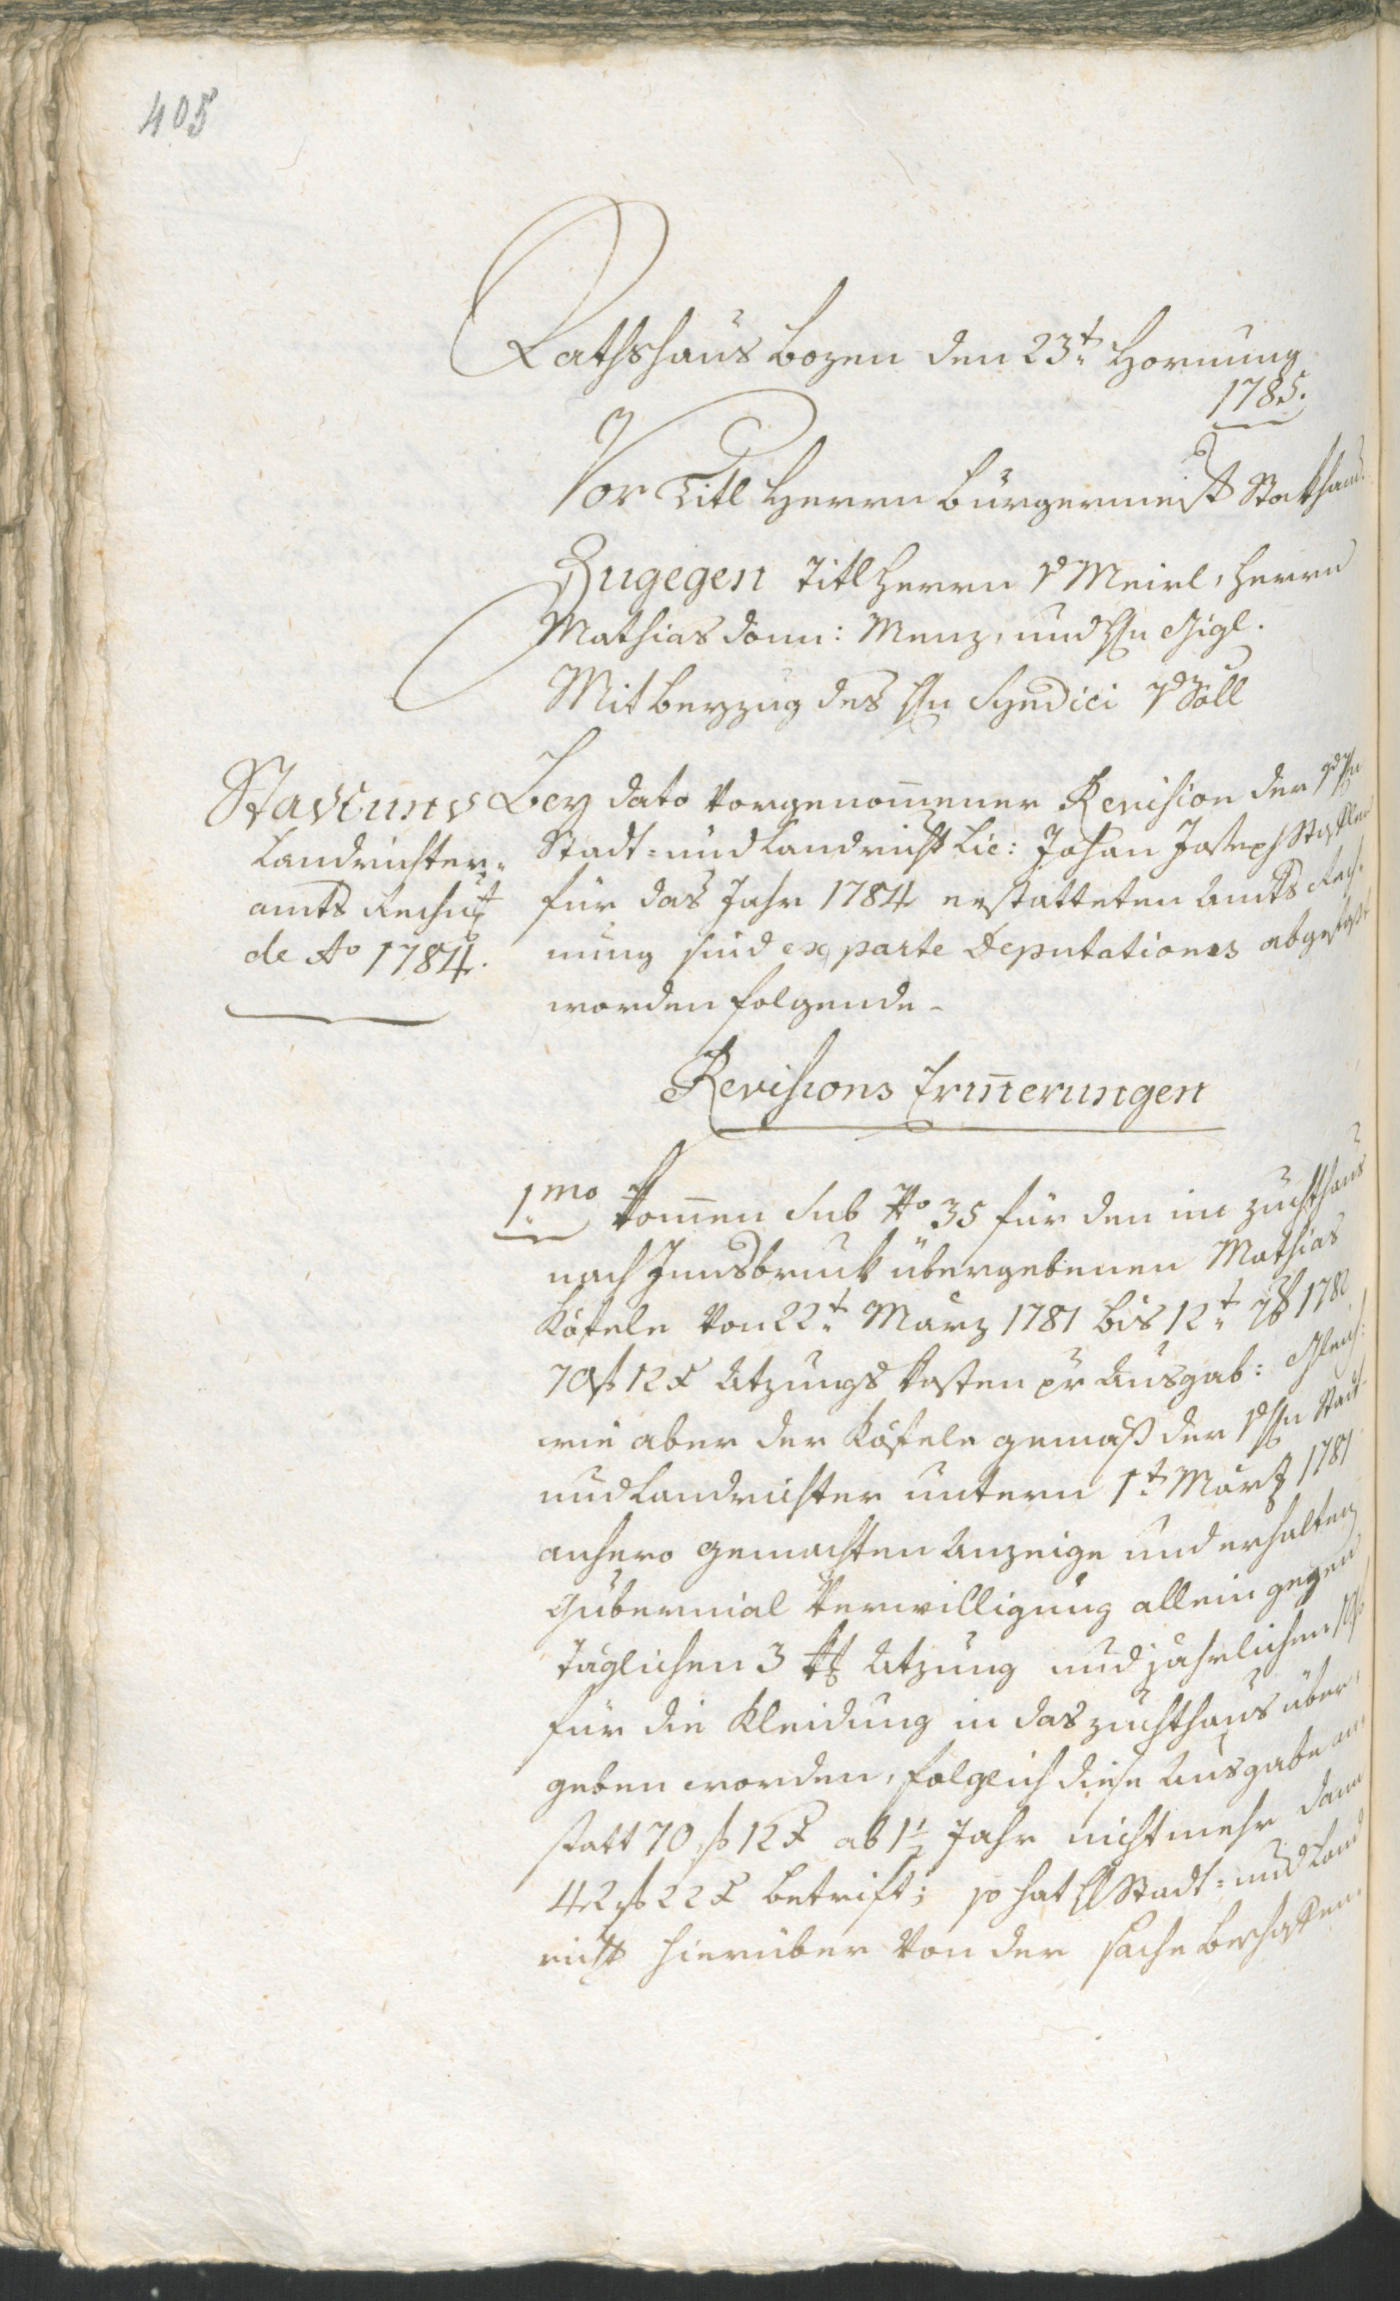 405
Rathshaus Bozen den 23t Hornung
1785.
Vor Titl Herrn Bürgermeist Stockham̄
Zugegen Titl Herrn v Meirl, Herrn
Mathias Dom: Menz, und Hn Gigl.
Mit beyzug des Hn Syndici v Söll
Statt und
Landrichter-
amts Rechnug
de Ao 1784.
Bey dato vorgenom̄ener Revision der vHn
Stadt- und Landricht Lic: Johan Joseph Stickler
für das Jahr 1784 erstatteten Amts Rech-
nung sind ex parte Deputationis abgefaßt
worden folgende-
Revisions Erin̄erungen
1mo kom̄en sub No 35 für den ins Zuchthaus
nach Innsbruck übergebenen Mathias
Köfele von 22t März 1781 bis 12t 7b 1782
70 f 12 x Atzungs kosten pr Ausgab: Gleich
wie aber der Köfele gemäß der vHn Stadt-
und Landrichter untern 1t März 1781
anhero gemachten Anzeige und erhalten
Gubernial Verwilligung allein gegen
täglichen 3 x Atzung und jährlichen 10 f
für die Kleidung in das Zuchthaus über-
geben worden, folglich diese Ausgabe an-
statt 70 f 12 x ab 1½ Jahr nicht mehr dann
42 f 22 x betrift; so hat H Stadt- und Land
richt hierüber von der sache beschaffen-